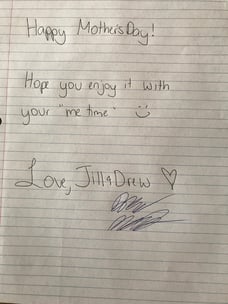 Happy Mother's Day!
Hope you enjoy it with
your "me time" :)
Love, Jill & Drew ♡